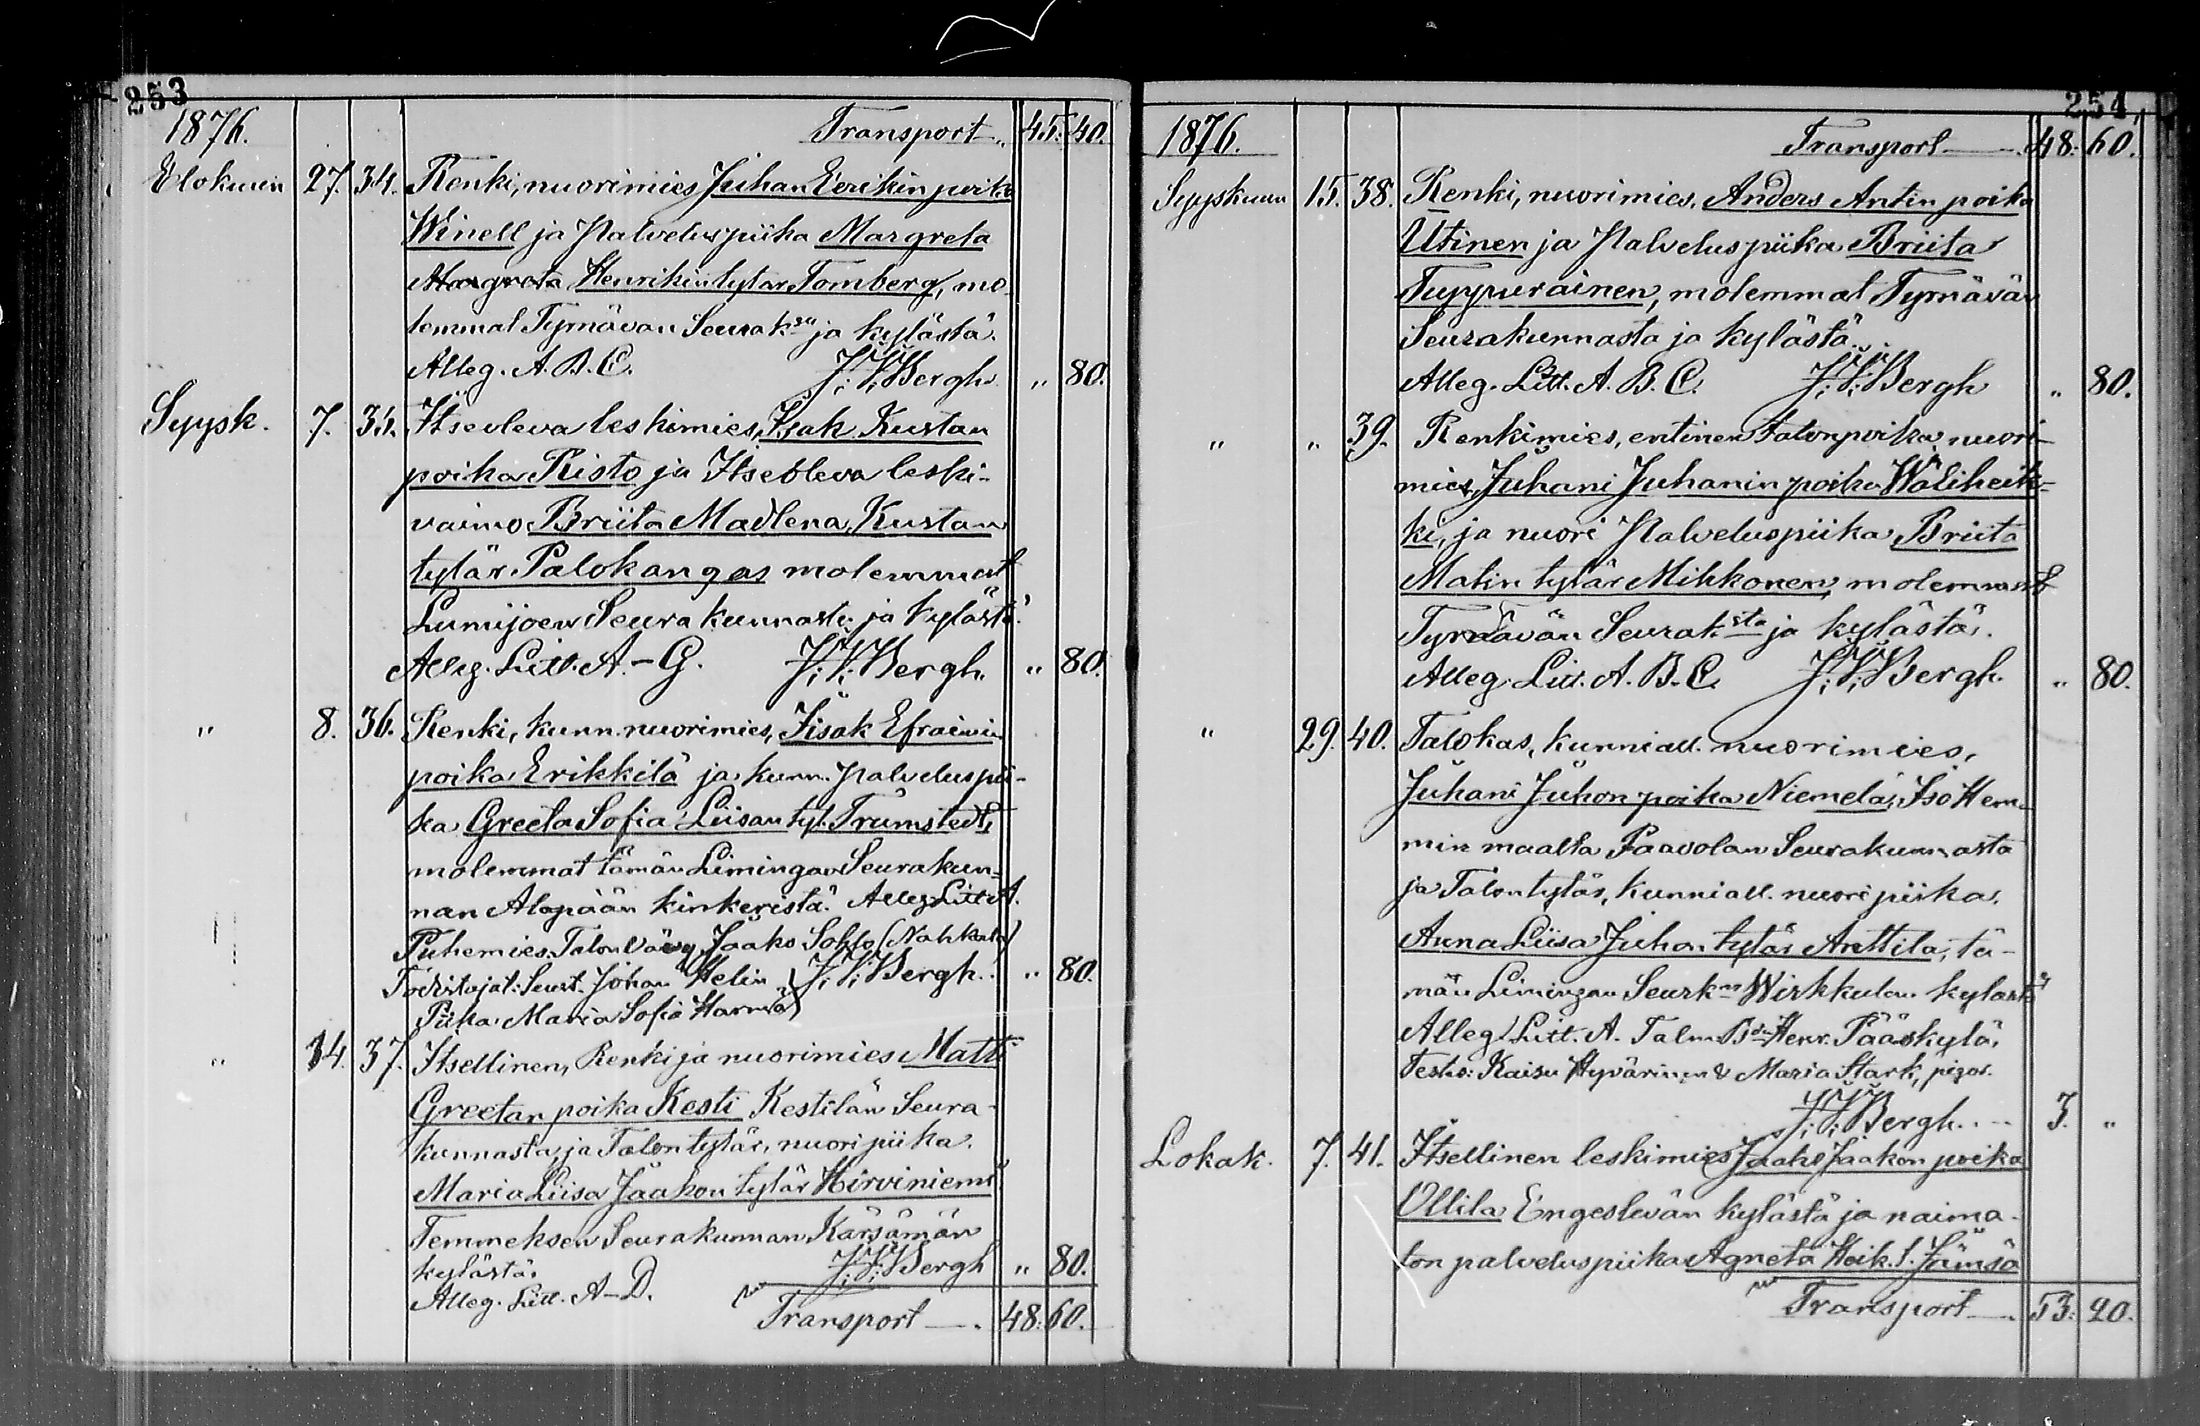 253
1876. Transport 45. 40.
Elokuun 27. 34. Renki, nuorimies Juhan Eerikin poika
Winell ja Palveluspiika Margreta
Margreta Henrikin tytar Tomberg, mo-
lemmat Tyrnävän Seurak:sta ja kylästä.
Alleg. A. B. C. J. V. Bergh. " 80.
Syysk. 7. 35. Itseoleva leskimies, Isak Kustan
poika Risto ja Itseoleva leski-
vaimo Briita Madlena, Kustan
tytär Palokangas molemmat
Lumijoen Seurakunnasta ja kylästä.
Alleg. Litt. A.-G. J. V. Bergh. " 80.
" 8. 36. Renki, kunn. nuorimies, Iisak Efraimin
poika Erikkilä ja kunn. palveluspii-
ka Greeta Sofia Liisan tyt. Trumstedt,
molemmat tämän Limingan Seurakun-
nan Alapään kinkeristä. Alleg. Litt A.
Puhemies Talon Vävy Jaako Sohlo (Nahkala)
Todistajat: Seurt. Johan Helin J. V. Bergh. " 80.
Piika Maria Sofia Harma
" 14. 37. Itsellinen, Renki ja nuorimies Matti
Greetan poika Kesti Kestilän Seura-
kunnasta, ja Talon tytär, nuori piika
Maria Liisa Jaakon tytär Hirviniemi
Temmeksen Seurakunnan Kärsämän
kylästä. J. V. Bergh " 80.
Alleg. Litt. A-D.
Transport 48. 60.
254
1876. Transport 48. 60.
Syyskuun 15. 38. Renki, nuorimies, Anders Antin poika
Utinen ja Palveluspiika Briita
Tuppurainen, molemmat Tyrnävän
Seurakunnasta ja kylästä.
Alleg. Litt. A. B. C. J. V. Bergh " 80.
" " 39. Renkimies, entinen talonpoika, nuori-
mies, Juhani Juhanin poika Wäliheik-
ki, ja nuori Palveluspiika Briita
Matin tytär Mikkonen, molemmat
Tyrnävän Seurak:sta ja kylästä.
Alleg. Litt. A. B. C. J. V. Bergh. " 80.
" 29. 40. Talokas, kunniall. nuorimies,
Juhani Juhon poika Niemelä, Iso Hem-
min maalta Paavolan Seurakunnasta
ja Talon tytär, kunniall. nuori piika
Anna Liisa Juhan tytär Anttila, tä-
män Limingan Seurk:nn Wirkkulan kylästä
Alleg. Litt. A. Talm. Henr. Pääskylä,
Testes: Kaisu Hyvärinen & Maria Stark, pigor.
J. V. Bergh. 3. "
Lokak. 7. 41. Itsellinen leskimies Jaako Jaakon poika
Ollila Engeslevän kylästä ja naima-
ton palveluspiika Agneta Heik. t. Jämsä
Transport 53. 20.